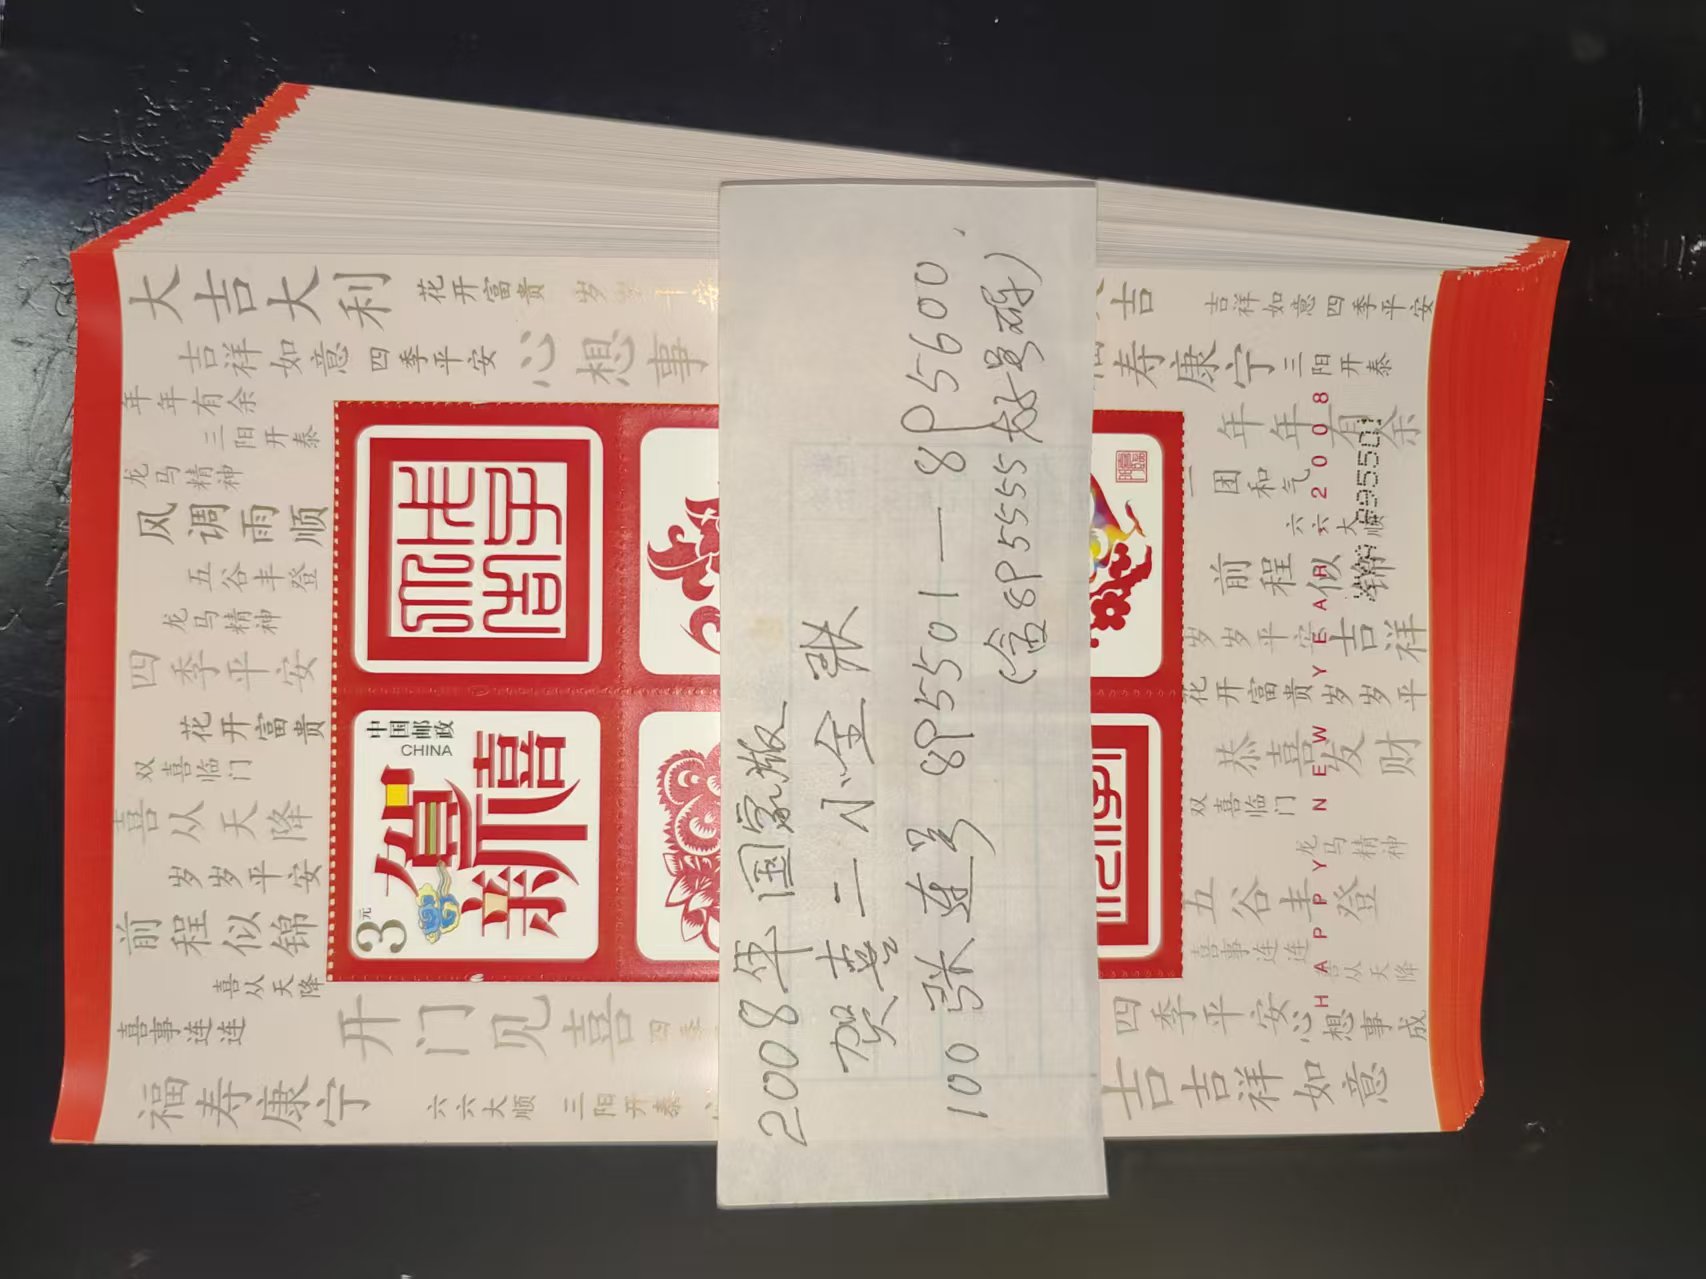 2008年国家版
贺喜二小全张
100张连号 8P5501—8P5600,
(含8P5555好号码)
3元
中国邮政
CHINA
贺新禧
大吉大利
花开富贵
吉祥如意
四季平安
心想事
年年有余
三阳开泰
龙马精神
风调雨顺
五谷丰登
龙马精神
四季平安
花开富贵
双喜临门
喜从天降
岁岁平安
前程似锦
喜从天降
喜事连连
开门见喜
四季
福寿康宁
六六大顺
三阳开泰
吉
吉祥如意
四季平安
寿康宁
三阳开泰
年年有余
一团和气
六六大顺
前程似锦
岁岁平安
吉祥
花开富贵
岁岁平
恭喜发财
双喜临门
龙马精神
五谷丰登
喜事连连
喜从天降
四季平安
心想事成
吉
吉祥如意
HAPPY NEW YEAR 2008